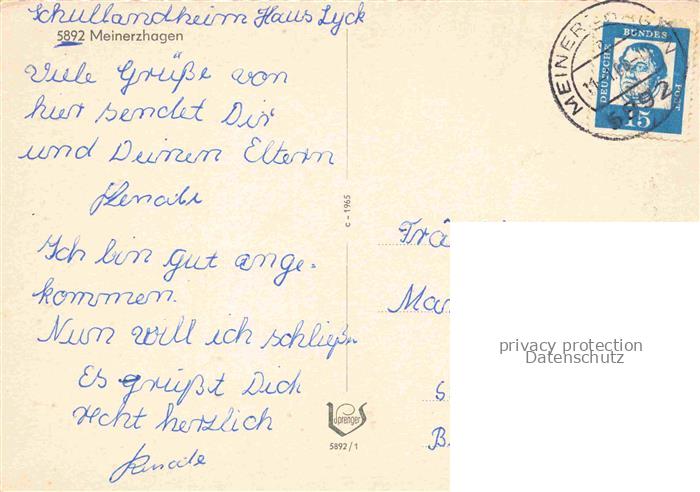 Schullandheim Haus Lyck
5892 Meinerzhagen
Viele Grüße von
hier sendet Dir
und Deinen Eltern
Renate
Ich bin gut ange-
kommen.
Nun will ich schließen
Es grüßt Dich
recht herzlich
Renate
c - 1965
sprenger
5892/1
MEINERZHAGEN
5892
DEUTSCHE BUNDESPOST
15
Frä
Mar
S
B
privacy protection
Datenschutz